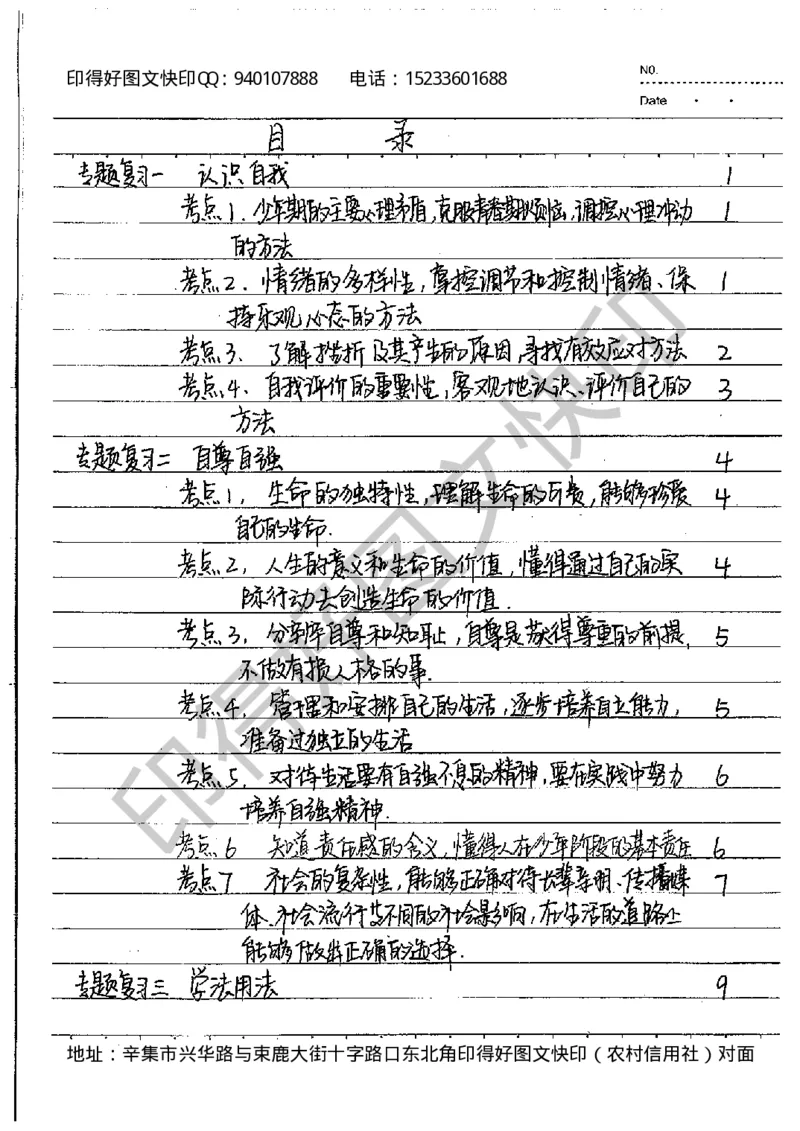 印得好图文快印QQ：940107888 电话：15233601688
NO.
Date
目 录
专题复习一 认识自我 1
考点1、少年期的主要心理矛盾，克服青春期烦恼，调控心理冲动 1
的方法
考点2、情绪的多样性，掌控调节和控制情绪、保 1
持乐观心态的方法
考点3、了解挫折及其产生的原因，寻找有效应对方法 2
考点4、自我评价的重要性，客观地认识、评价自己的 3
方法
专题复习二 自尊自强 4
考点1、生命的独特性，理解生命的可贵，能够珍爱 4
自己的生命.
考点2、人生的意义和生命的价值，懂得通过自己的实 4
际行动去创造生命的价值.
考点3、分辛辛自尊和知耻，自尊是获得尊重的前提， 5
不做有损人格的事.
考点4、管理和安排自己的生活，逐步培养自立能力， 5
准备过独立的生活
考点5、对待生活要有自强不息的精神，要在实践中努力 6
培养自强精神.
考点6 知道责任感的含义，懂得人在少年阶段的基本责任 6
考点7 社会的复杂性，能够正确对待长辈亲朋、传播媒 7
体、社会流行等不同的社会影响，在生活的道路上
能够做出正确的选择.
专题复习三 学法用法 9
地址：辛集市兴华路与束鹿大街十字路口东北角印得好图文快印（农村信用社）对面
印得好图文快印